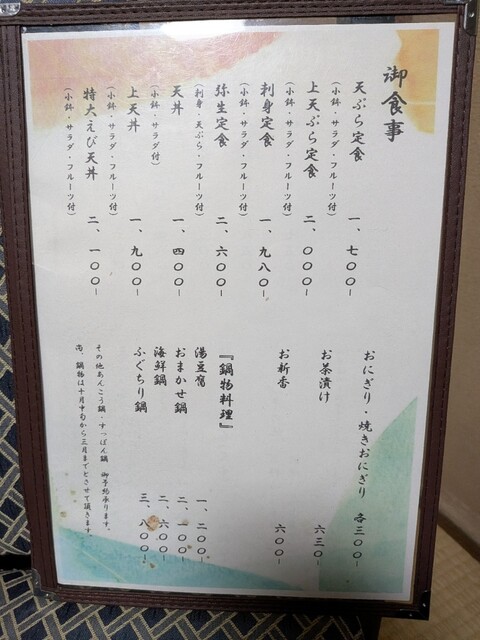 御食事
天ぷら定食 一、七〇〇-
(小鉢・サラダ・フルーツ付)
上天ぷら定食 二、〇〇〇-
(小鉢・サラダ・フルーツ付)
刺身定食 一、九八〇-
(小鉢・サラダ・フルーツ付)
弥生定食 二、六〇〇-
(刺身・天ぷら・フルーツ付)
天丼 一、四〇〇-
(小鉢・サラダ付)
上天丼 一、九〇〇-
(小鉢・サラダ・フルーツ付)
特大えび天丼 二、一〇〇-
(小鉢・サラダ・フルーツ付)
おにぎり・焼きおにぎり 各三〇〇-
お茶漬け 六三〇-
お新香 六〇〇-
『鍋物料理』
湯豆腐 一、二〇〇-
おまかせ鍋 二、一〇〇-
海鮮鍋 二、六〇〇-
ふぐちり鍋 三、八〇〇-
その他あんこう鍋・すっぽん鍋 御予約承ります。
尚、鍋物は十月中旬から三月までとさせて頂きます。